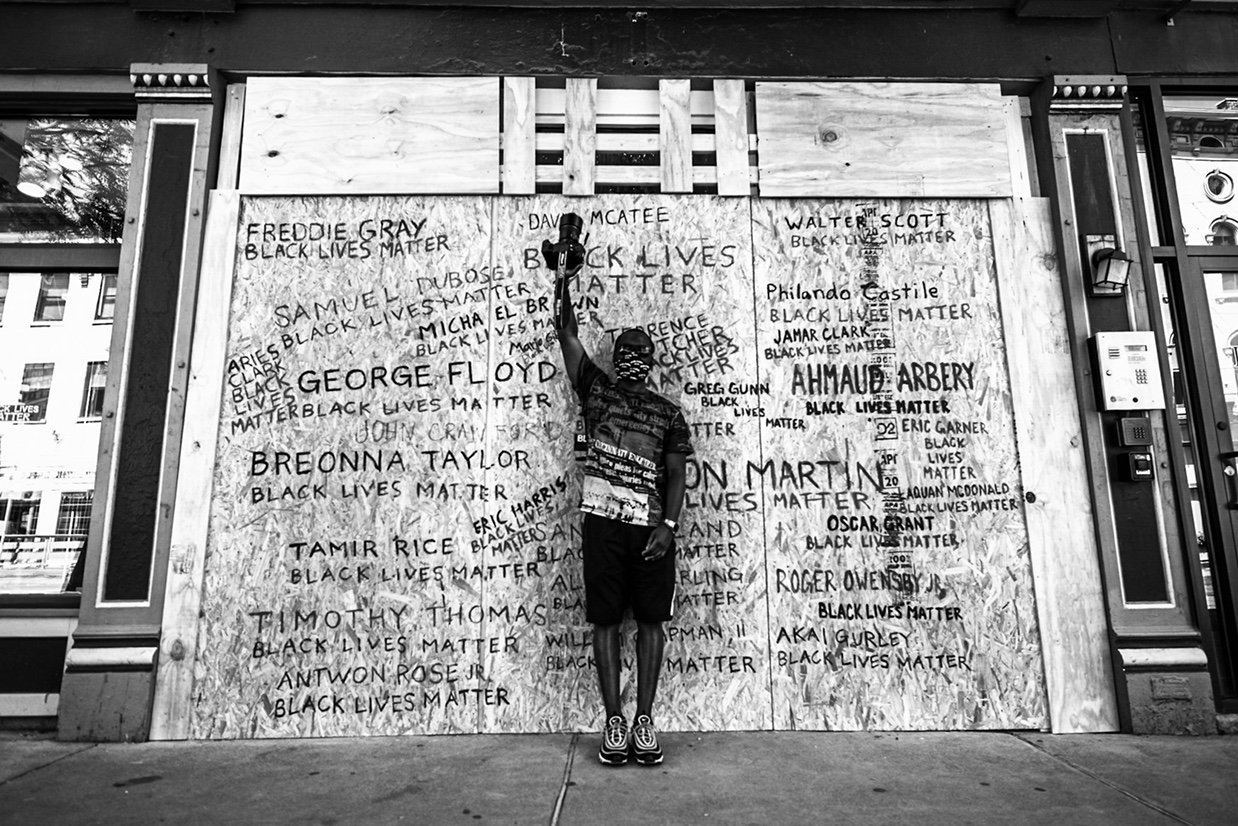 FREDDIE GRAY
BLACK LIVES MATTER
SAMUEL DUBOSE
BLACK LIVES MATTER
MICHAEL BROWN
BLACK LIVES MATTER
ARIES
CLARK
BLACK
LIVES
MATTER
GEORGE FLOYD
BLACK LIVES MATTER
JOHN CRAWFORD
BREONNA TAYLOR
BLACK LIVES MATTER
ERIC HARRIS
BLACK LIVES
MATTERS
TAMIR RICE
BLACK LIVES MATTER
TIMOTHY THOMAS
BLACK LIVES MATTER
ANTWON ROSE JR.
BLACK LIVES MATTER
MCATEE
LIVES
MATTER
TERENCE
LIVES
GREG GUNN
BLACK
LIVES
MATTER
MATTER
ON MARTIN
LIVES MATTER
AND
MATTER
RLING
MATTER
WILL APMAN II
BLACK MATTER
WALTER SCOTT
BLACK LIVES MATTER
Philando Castile
BLACK LIVES MATTER
JAMAR CLARK
BLACK LIVES MATTER
AHMAUD ARBERY
BLACK LIVES MATTER
ERIC GARNER
BLACK
LIVES
MATTER
LAQUAN MCDONALD
BLACK LIVES MATTER
OSCAR GRANT
BLACK LIVES MATTER
ROGER OWENSBY JR.
BLACK LIVES MATTER
AKAI GURLEY
BLACK LIVES MATTER